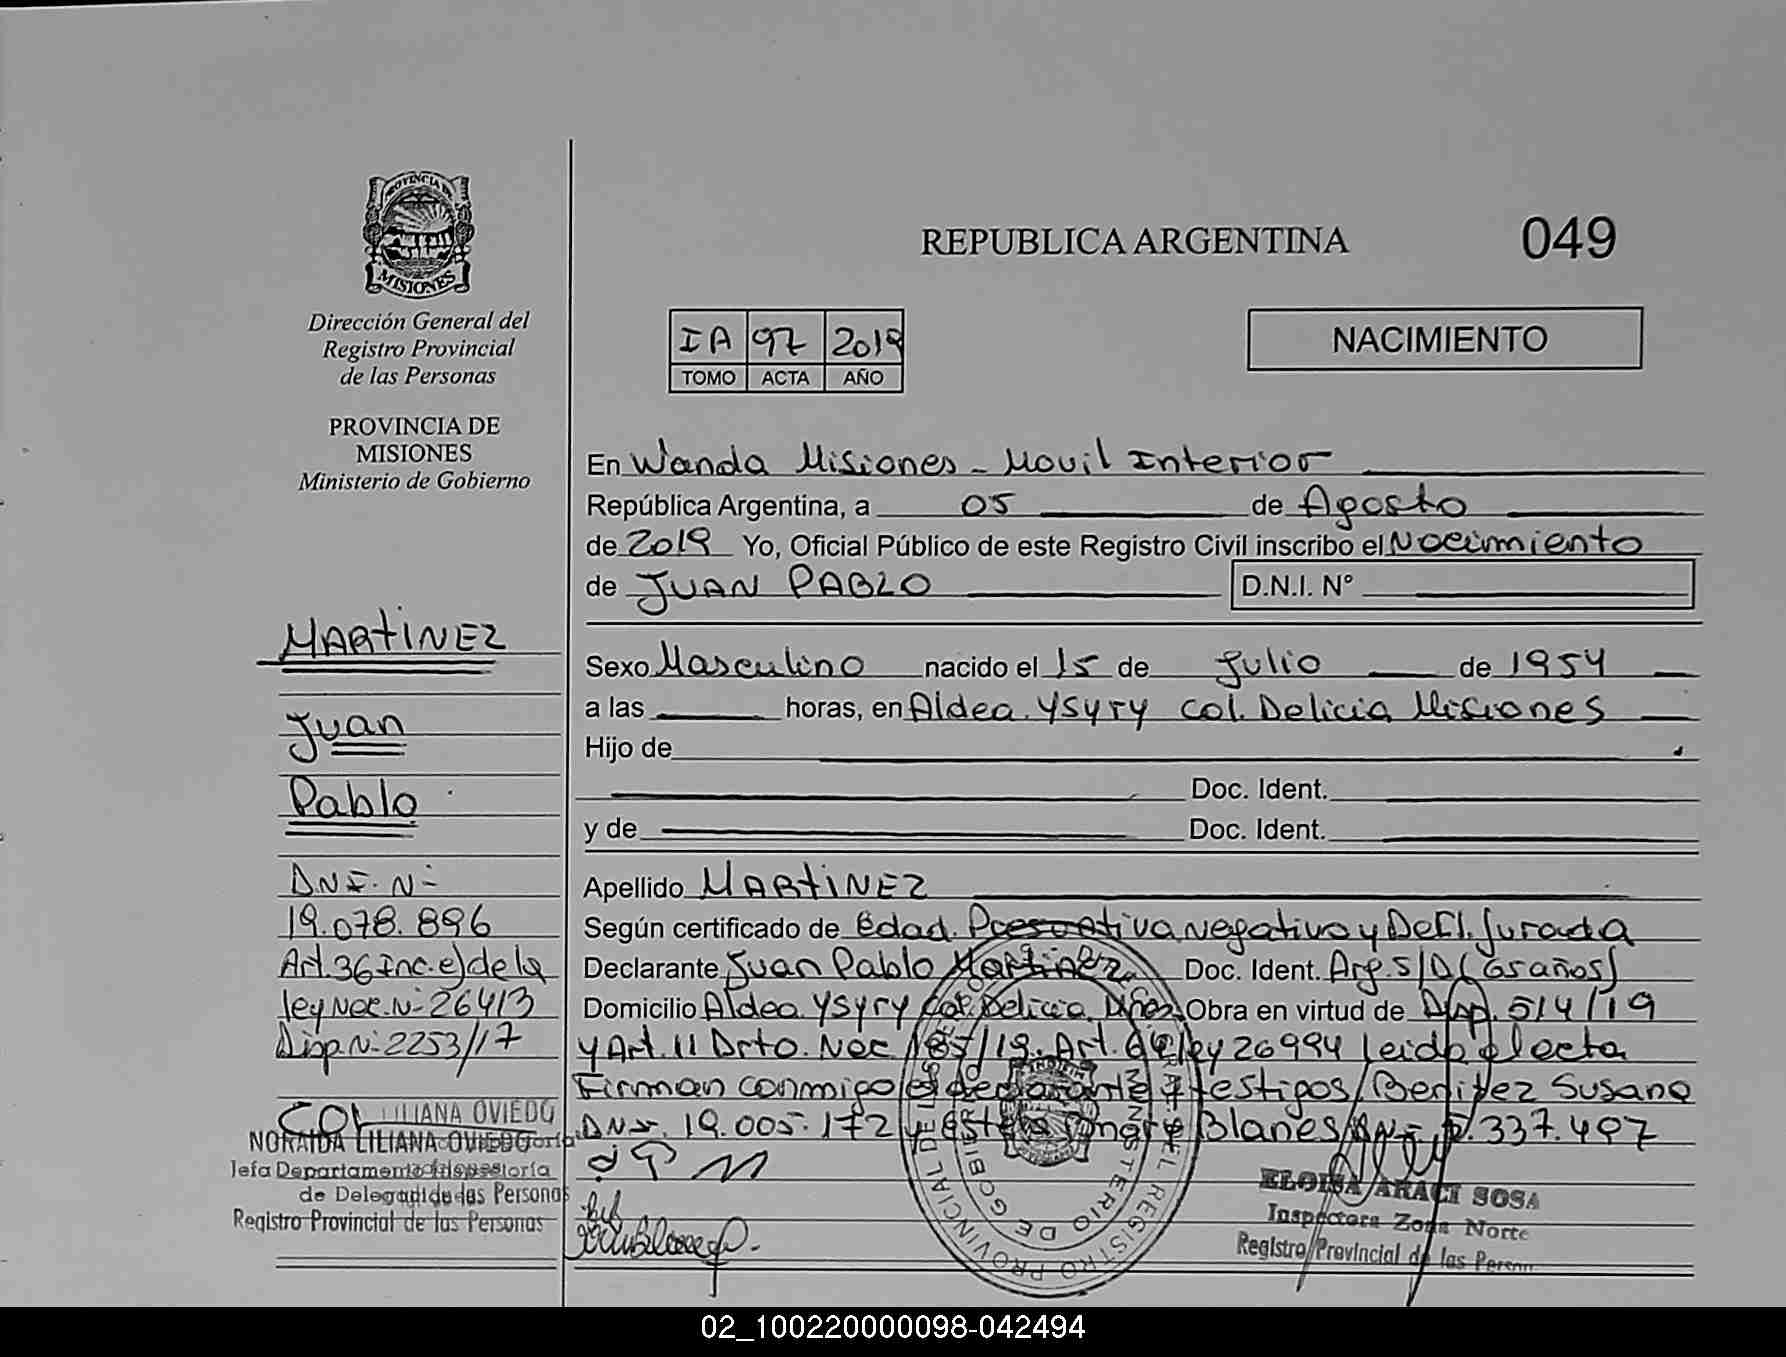 PROVINCIA DE
MISIONES
Dirección General del
Registro Provincial
de las Personas
PROVINCIA DE
MISIONES
Ministerio de Gobierno
REPUBLICA ARGENTINA
049
IA 97 2019
TOMO ACTA AÑO
NACIMIENTO
En Wanda Misiones - Movil Interior
República Argentina, a 05 de Agosto
de 2019 Yo, Oficial Público de este Registro Civil inscribo el Nacimiento
de JUAN PABLO D.N.I. Nº
Sexo Masculino nacido el 15 de Julio de 1954
a las horas, en Aldea Ysyry Col. Delicia Misiones
Hijo de
Doc. Ident.
y de Doc. Ident.
Apellido MARTINEZ
Según certificado de Edad. negativo y Jurada
Declarante Juan Pablo Martinez Doc. Ident. Arg. S/D (65 años)
Domicilio Aldea Ysyry Col. Delicia Obra en virtud de Disp. 514/19
y Art. 11 Drto. Nac 185/19. Art. 64 ley 26994 leida el acta
Firman conmigo el declarante y testigos Benitez Susana
19.005.172 y Blanes 337.497
MARTINEZ
Juan
Pablo
DNI. Nº
19.078.896
Art. 36 Inc. e) de la
ley Nac. Nº 26413
Disp. Nº 2253/17
NORAIDA LILIANA OVIEDO
Jefa Departamento
de las Personas
Registro Provincial de las Personas
REGISTRO PROVINCIAL DE LAS
MINISTERIO DE GOBIERNO
ELOISA ARACI SOSA
Inspectora Zona Norte
Registro Provincial de las Person
02_100220000098-042494